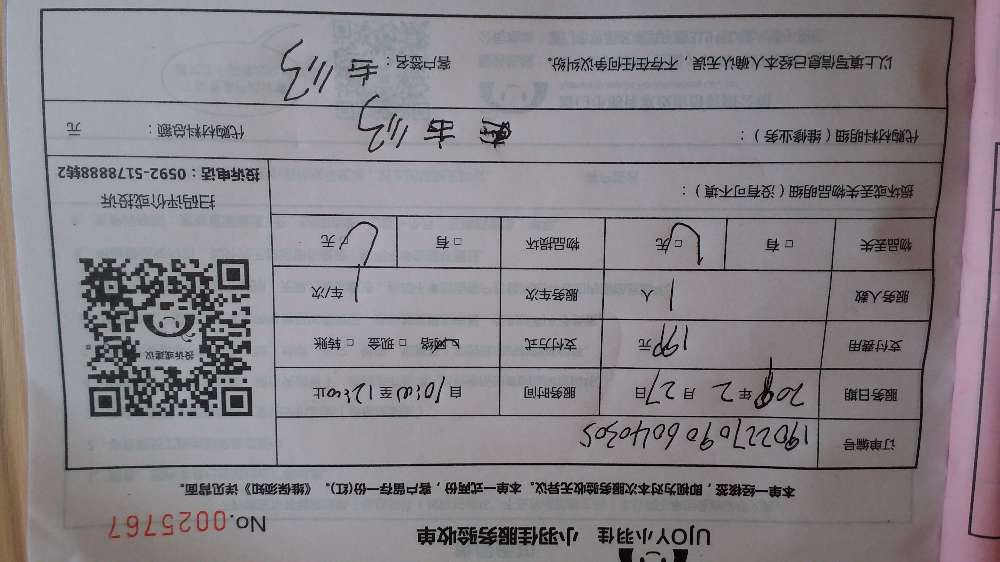 UJOY小羽佳 小羽佳服务验收单
No.0025767
本单一经核签，即视为对本次服务验收无异议。本单一式两份，客户留存一份(红)。《维保须知》详见背面。
订单编号 190227090604020305
服务日期 2019年2月27日 服务时间 自10:00至12:00止
支付费用 199元 支付方式 网络 □现金 □转账
服务人数 1人 服务车次 1车/次
物品丢失 □有 □无 物品损坏 □有 □无
投诉或建议
扫码评价或投诉
投诉电话：0592-5178888转2
损坏或丢失物品明细（没有可不填）：
代购材料明细（维修业务）： 代购材料总额： 元
以上填写信息已经本人确认无误，不存在任何争议纠纷。 客户签名：